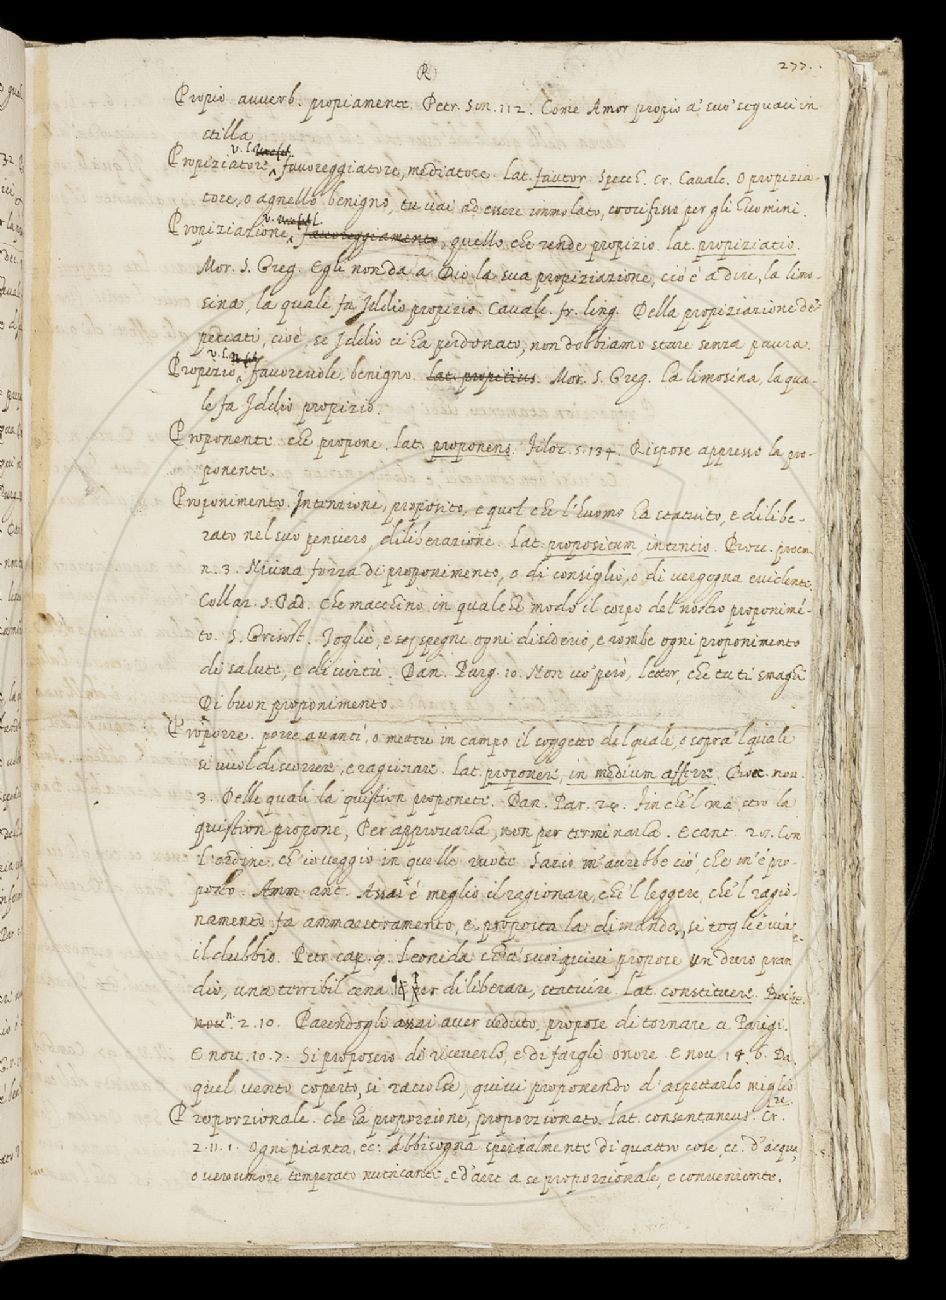 R
277.
Propio avverb. propiamente. Petr. Son. 112. Come Amor propio a' suo' seguaci in
stilla
Propiziatore, v. L. favoreggiatore, mediatore. lat. fautor. Specc. Cr. Cavalc. O propizia-
tore, o agnello benigno, tu vai ad essere immolato, crocifisso per gli huomini.
Propiziazione, v. L. favoreggiamento, quello che rende propizio. lat. propiziatio.
Mor. S. Greg. Egli non da a Dio la sua propiziazione, cio è a dire, la limo-
sina, la quale fa Iddio propizio. Cavalc. fr. ling. Della propiziazione de'
peccati, cioè, se Iddio ci ha perdonato, non dobbiamo stare senza paura.
Propizio, v. L. favorevole, benigno. lat. propitius. Mor. S. Greg. La limosina, la qua-
le fa Iddio propizio.
Proponente che propone. lat. proponens. Filoc. 5. 134. Rispose appresso la pro-
ponente.
Proponimento. Intenzione, proposito, e quel che l'huomo ha statuito, e delibe-
rato nel suo pensiero, diliberazione. lat. propositum, intentio. Bocc. proem.
n. 3. Niuna forza di proponimento, o di consiglio, o di vergogna evidente
Collaz. S. Pad. Che macchino in qualche modo il corpo del nostro proponimē-
to. S. Grisost. Toglie, e spegne ogni disiderio, e rompe ogni proponimento
di salute, e di virtù. Dan. Purg. 10. Non vo' però, lettor, che tu ti smaghi
Di buon proponimento
Proporre. porre avanti, o mettere in campo il soggetto del quale, o sopra 'l quale
si vuol discorrere, e ragionare. lat. proponere, in medium afferre. Bocc. nou.
3. Delle quali la quistion proponete. Dan. Par. 24. Fin che'l maestro la
quistion propone, Per approvarla, non per terminarla. E cant. 20. Con
l'ordine, ch'io veggio in quelle ruote Sazio m'avrebbe ciò, che m'è pro-
posto. Amm. ant. Assai è meglio il ragionare, che 'l leggere, che'l ragio-
namento fa ammaestramento, e proposta la dimanda, si toglie via
il dubbio. Petr. cap. 9. Leonida ch'a' suoi propose un duro pran
dio, una terribil cena per diliberare, statuire. lat. constituere.
nou. 2. 10. Parendogli assai aver veduto, propose di tornare a Parigi.
E nov. 10. 7. Si proposero di riceverlo, e di fargli onore. E nou. 14. 6. Da
quel vento coperto, si raccolse, quivi proponendo d'aspettarlo miglio
re.
Proporzionale. che ha proporzione, proporzionato. lat. consentaneus. Cr.
2. 11. 1. Ogni pianta, ec. Abbisogna spezialmente di quattro cose, ci. d'acqua,
o vero umore temperato nutricante, e d'aere a se proporzionale, e conveniente.